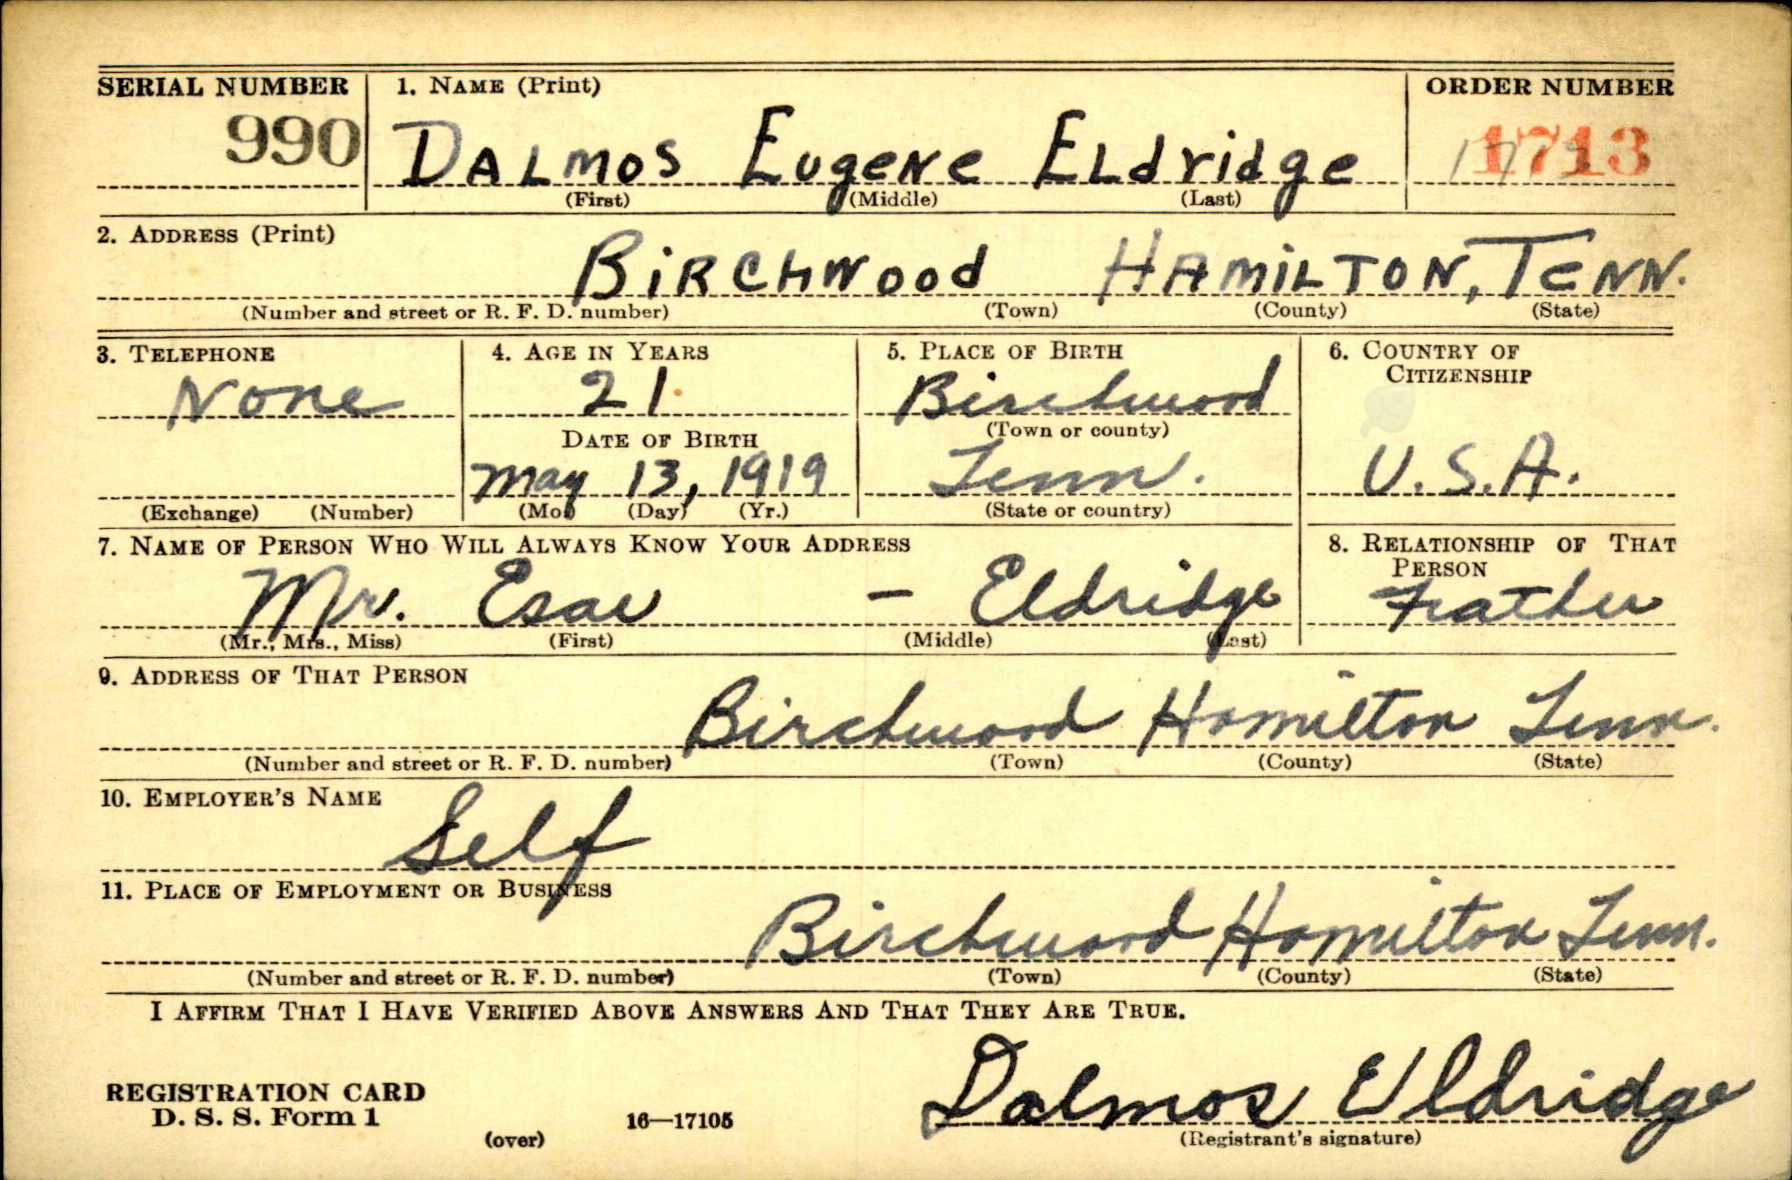 SERIAL NUMBER 1. NAME (Print) ORDER NUMBER
990 DALMOS EUGENE ELdridge 1713
(First) (Middle) (Last)
2. ADDRESS (Print)
BIRCHWOOD HAMILTON, TENN.
(Number and street or R. F. D. number) (Town) (County) (State)
3. TELEPHONE 4. AGE IN YEARS 5. PLACE OF BIRTH 6. COUNTRY OF CITIZENSHIP
None 21 Birchwood
(Town or county)
DATE OF BIRTH
May 13, 1919 Tenn. U.S.A.
(Exchange) (Number) (Mo.) (Day) (Yr.) (State or country)
7. NAME OF PERSON WHO WILL ALWAYS KNOW YOUR ADDRESS 8. RELATIONSHIP OF THAT PERSON
Mr. Esau — Eldridge Father
(Mr., Mrs., Miss) (First) (Middle) (Last)
9. ADDRESS OF THAT PERSON
Birchwood Hamilton Tenn.
(Number and street or R. F. D. number) (Town) (County) (State)
10. EMPLOYER'S NAME
Self
11. PLACE OF EMPLOYMENT OR BUSINESS
Birchwood Hamilton Tenn.
(Number and street or R. F. D. number) (Town) (County) (State)
I AFFIRM THAT I HAVE VERIFIED ABOVE ANSWERS AND THAT THEY ARE TRUE.
Dalmos Eldridge
REGISTRATION CARD
D. S. S. Form 1
(over) 16—17105 (Registrant's signature)